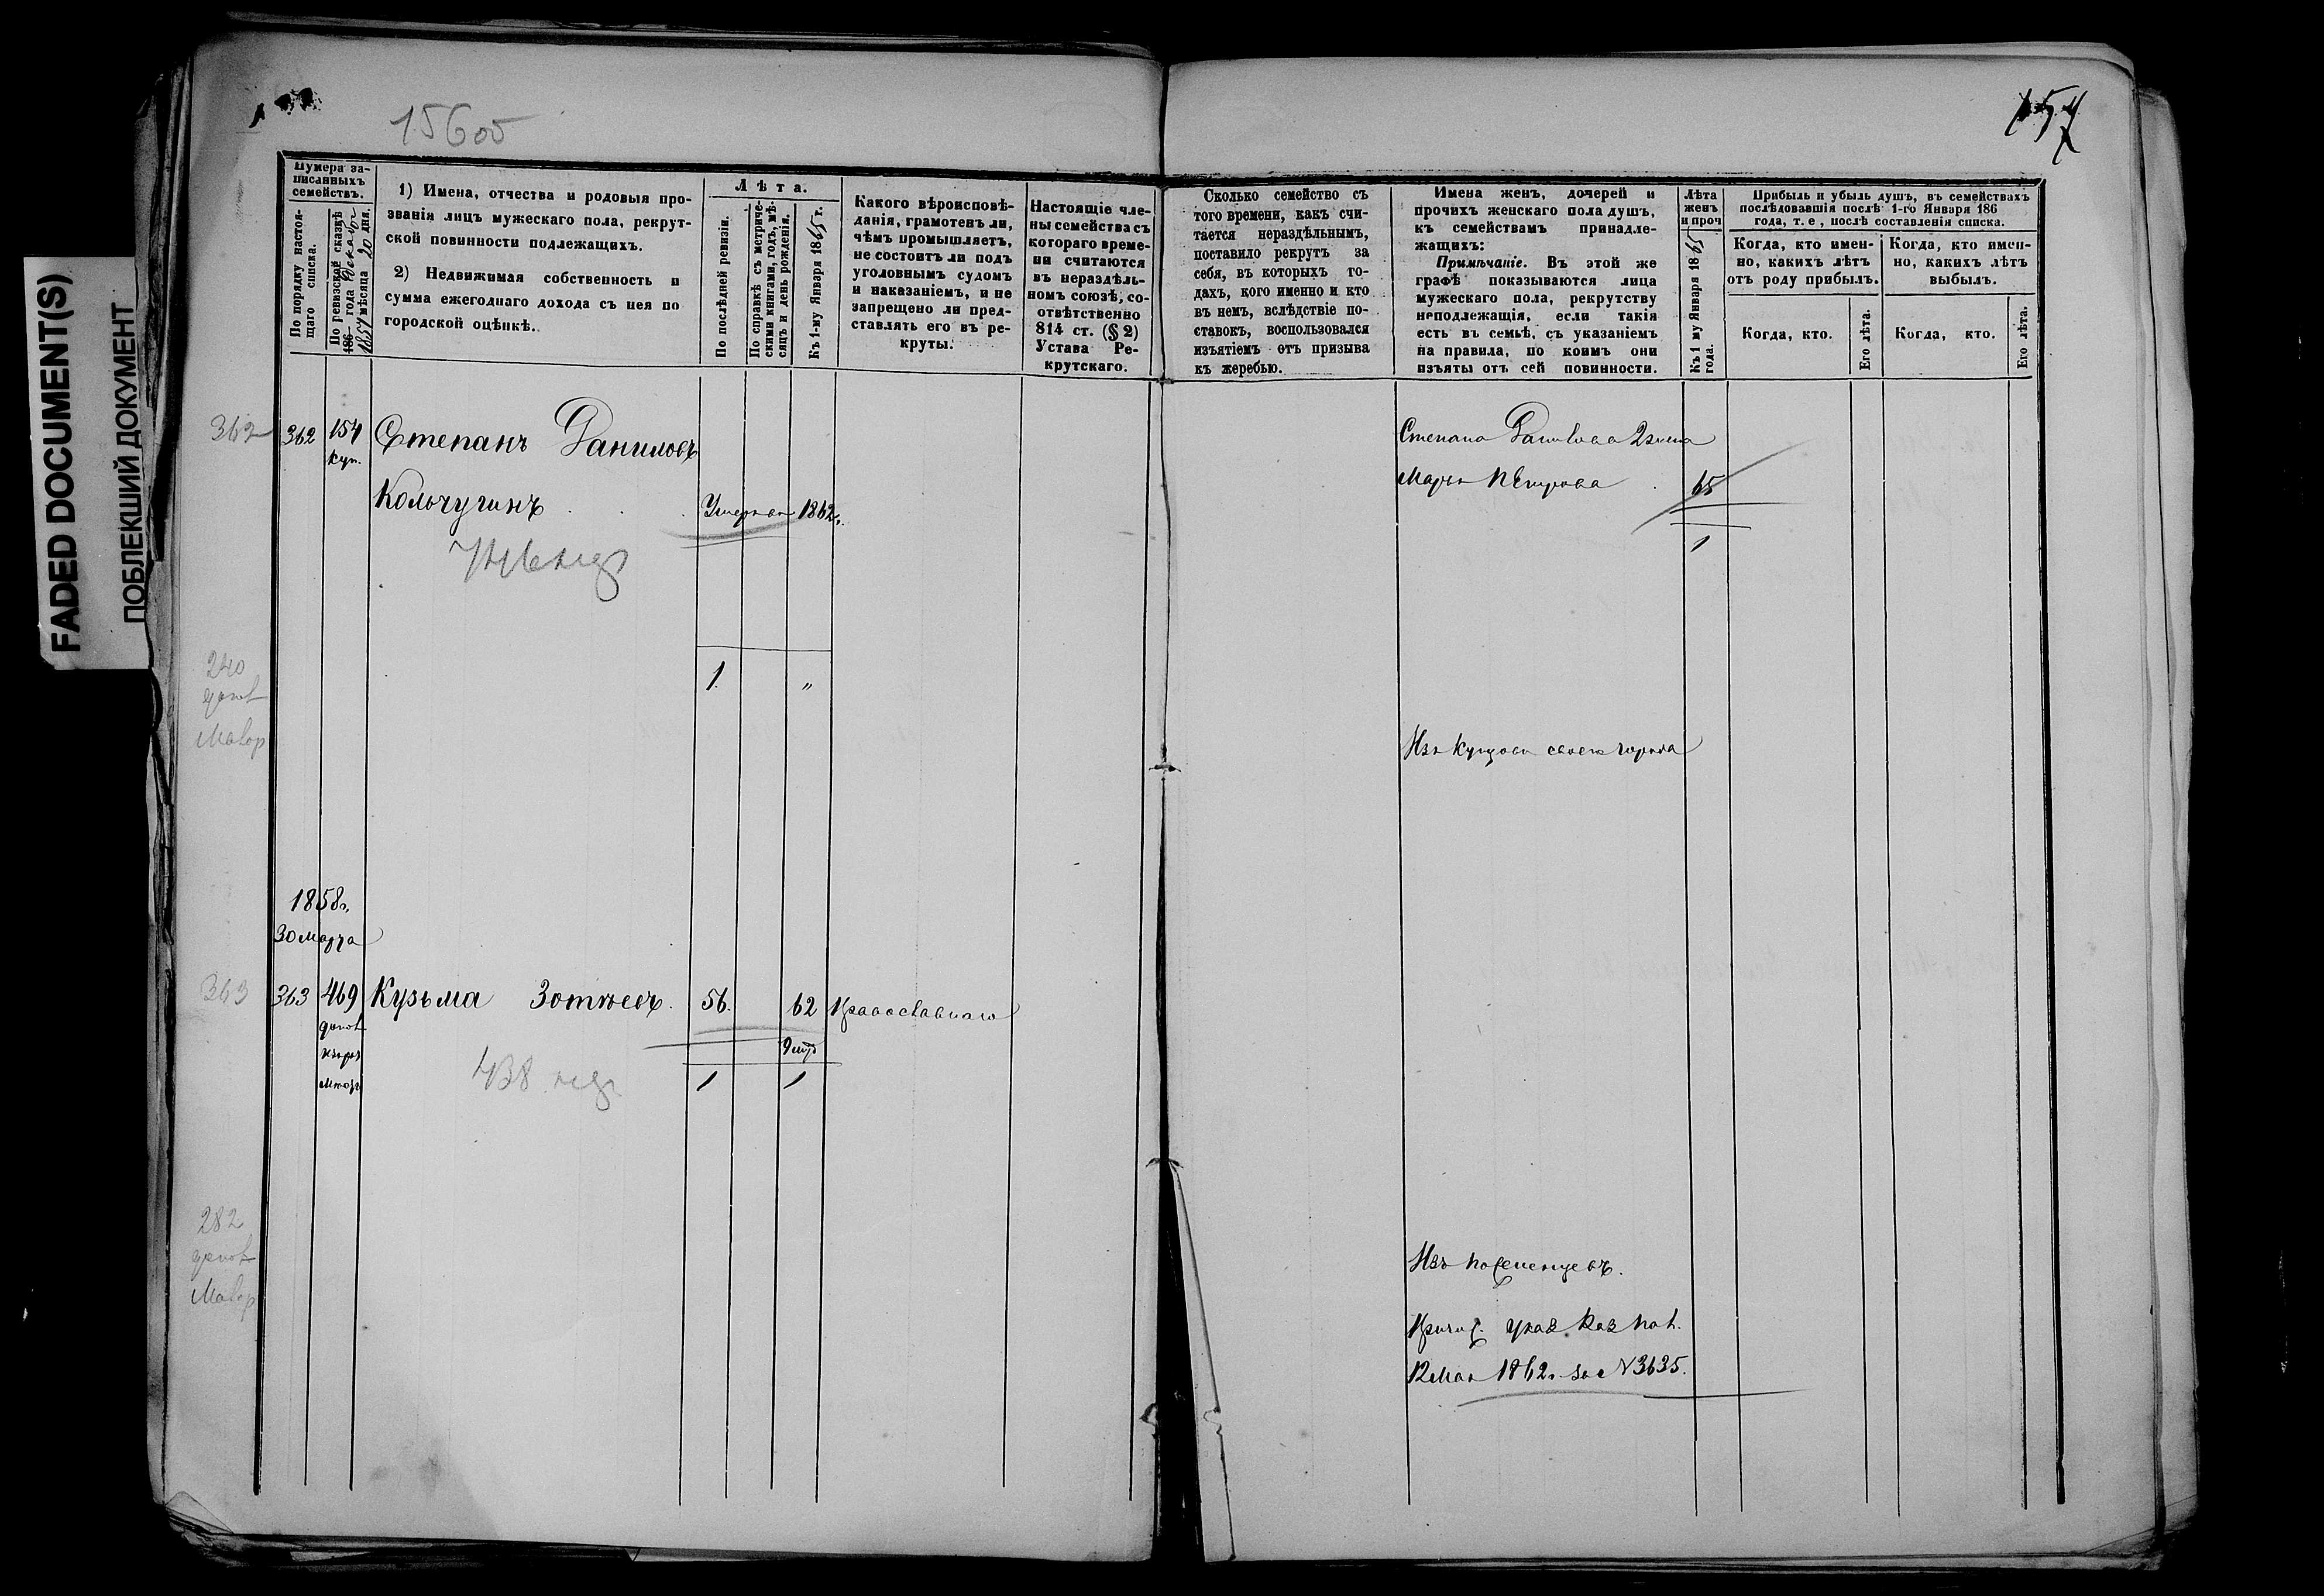 FADED DOCUMENT(S)
ПОБЛЕКШИЙ ДОКУМЕНТ
157
Нумера за-
писанныхъ
семействъ.
По порядку настоя-
щаго списка.
По ревизской сказкѣ
186 года Декабр
1857 мѣсяца 20 дня.
1) Имена, отчества и родовыя про-
званія лицъ мужескаго пола, рекрут-
ской повинности подлежащихъ.
2) Недвижимая собственность и
сумма ежегоднаго дохода съ нея по
городской оцѣнкѣ.
Лѣта.
По послѣдней ревизіи.
По справкѣ съ метриче-
скими книгами, годъ, мѣ-
сяцъ и день рожденія.
Къ 1-му Января 1865 г.
Какого вѣроисповѣ-
данія, грамотенъ ли,
чѣмъ промышляетъ,
не состоитъ ли подъ
уголовнымъ судомъ
и наказаніемъ, и не
запрещено ли пред-
ставлять его въ ре-
круты.
Настоящіе чле-
ны семейства съ
котораго време-
ни считаются
въ нераздѣль-
номъ союзѣ, со-
отвѣтственно
814 ст. (§ 2)
Устава Ре-
крутскаго.
Сколько семейство съ
того времени, какъ счи-
тается нераздѣльнымъ,
поставило рекрутъ за
себя, въ которыхъ го-
дахъ, кого именно и кто
въ немъ, вслѣдствіе по-
ставокъ, воспользовался
изъятіемъ отъ призыва
къ жеребью.
Имена женъ, дочерей и
прочихъ женскаго пола душъ,
къ семействамъ принадле-
жащихъ:
Примѣчаніе. Въ этой же
графѣ показываются лица
мужескаго пола, рекрутству
неподлежащія, если такія
есть въ семьѣ, съ указаніемъ
на правила, по коимъ они
изъяты отъ сей повинности.
Лѣта
женъ
и проч
Къ 1 му Января 1859
года.
Прибыль и убыль душъ, въ семействахъ
послѣдовавшія послѣ 1-го Января 186
года, т. е, послѣ составленія списка.
Когда, кто имен-
но, какихъ лѣтъ
отъ роду прибылъ.
Когда, кто.
Его лѣта.
Когда, кто имен-
но, какихъ лѣтъ
выбылъ.
Когда, кто.
Его лѣта.
362 362 154 Степанъ Даниловъ
куп.
Кольчугинъ
Умеръ въ 1862г.
1 "
Степана Данилова 2 жена
Марья Петрова 65
1
240
Изъ купцовъ своего города
1858г.
30 марта
363 363 469 Кузьма Зотѣевъ. 56. 62 Православнаго
1 1
438
282
Изъ поселенцевъ.
Причис. указ Каз пал.
12 Мая 1862г. за N 3635.